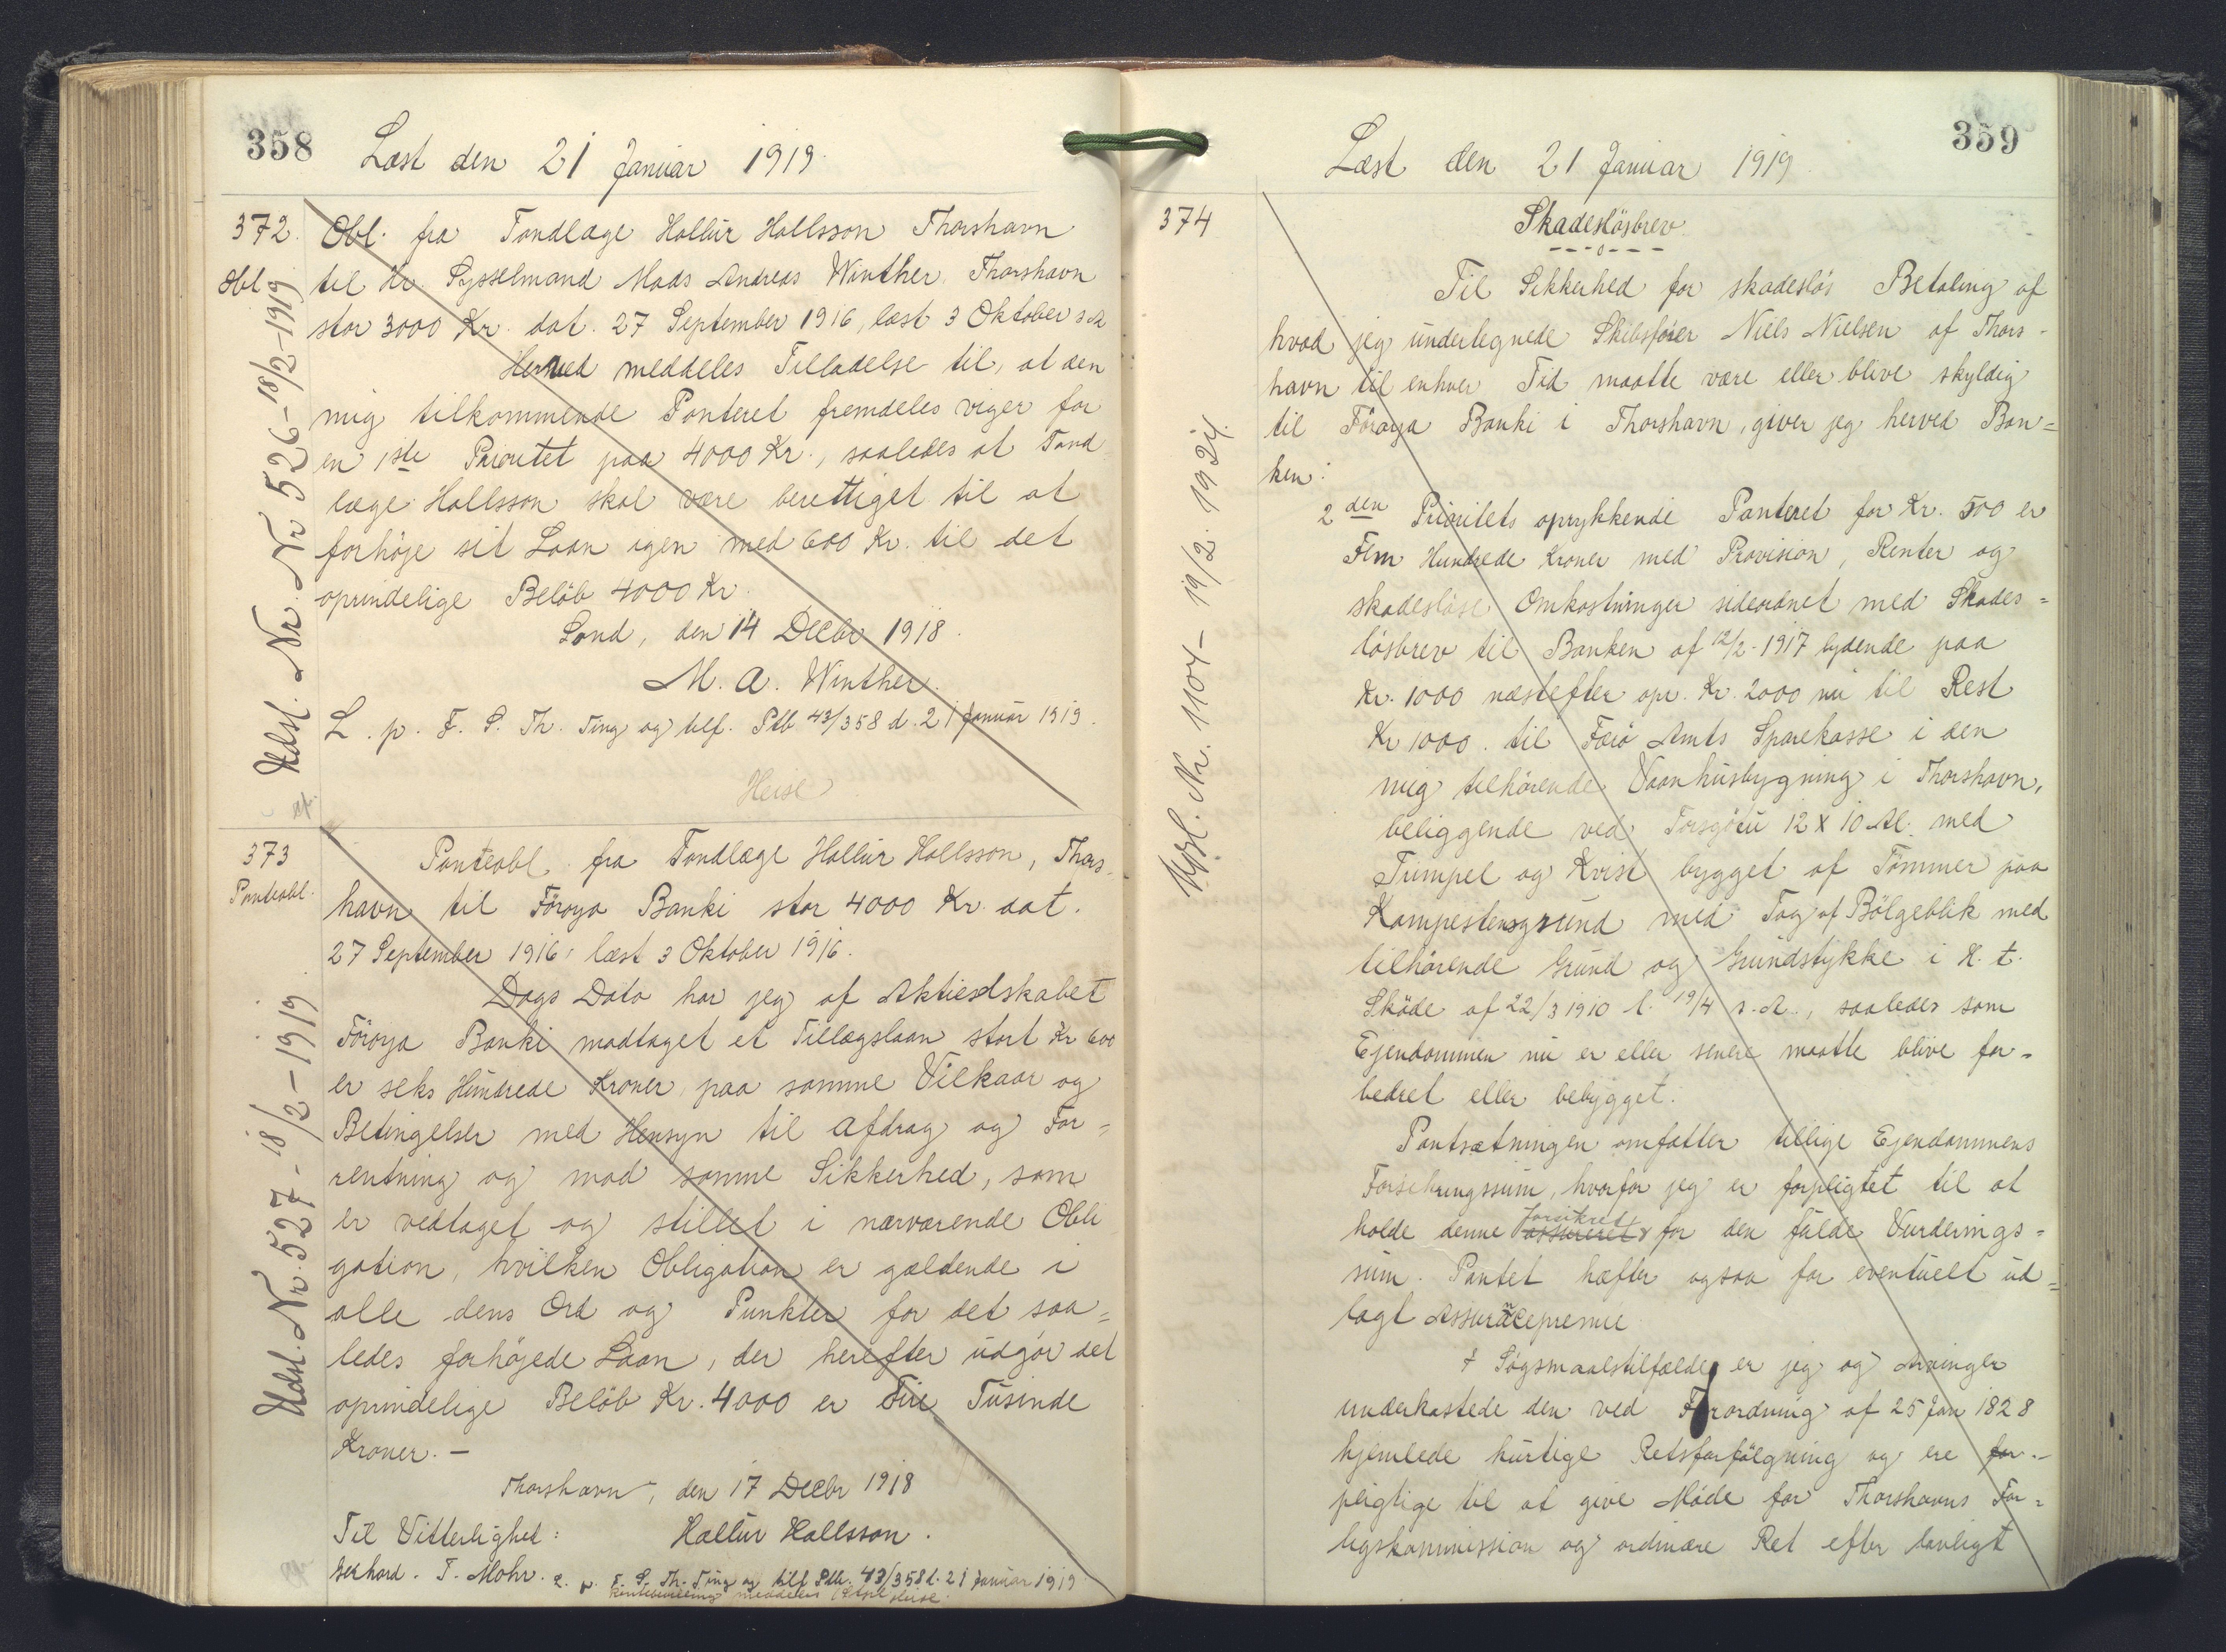 358
Læst den 21 Januar 1919.
372.
Obl.
Udsl. Nr. Nr 526 - 18/2 - 1919
Obl. fra Tandlæge Hallur Hallsson Thorshavn
til Hr. Sysselmand Mads Andreas Winther, Thorshavn
stor 3000 Kr. dat. 27 September 1916, læst 3 Oktober s. A.
Herved meddeles Tilladelse til, at den
mig tilkommende Panteret fremdeles viger for
en 1ste Prioritet paa 4000 Kr., saaledes at Tand
læge Hallsson skal være berettiget til at
forhøje sit Laan igen med 600 Kr. til det
oprindelige Beløb 4000 Kr.
Sand, den 14 Decbr 1918.
M. A. Winther.
L. p. F. S. Th. Ting og tilf. Ptb 43/358 d. 21 Januar 1919.
Heise
373
Panteobl.
Udsl. Nr. 527 - 18/2 - 1919
Panteobl. fra Tandlæge Hallur Hallsson, Thors-
havn til Föroya Banki stor 4000 Kr. dat.
27 September 1916, læst 3 Oktober 1916.
Dags Dato har jeg af Aktieselskabet
Föroya Banki modtaget et Tillægslaan stort Kr 600
er seks Hundrede Kroner paa samme Vilkaar og
Betingelser med Hensyn til Afdrag og For=
rentning og mod samme Sikkerhed, som
er vedtaget og stillet i nærværende Obli
gation, hvilken Obligation er gældende i
alle dens Ord og Punkter for det saa=
ledes forhøjede Laan, der herefter udgör det
oprindelige Beløb Kr. 4000 er Fire Tusinde
Kroner. —
Thorshavn, den 17 Decbr 1918
Til Vitterlighed: Hallur Hallsson.
Gerhard. T. Mohr. L. p. F. S. Th. Ting og tilf Ptb. 43/358 d. 21 Januar 1919
meddeles Heise
359
Læst den 21 Januar 1919.
374
Udsl. Nr. 1104 - 19/2. 1924.
Skadesløsbrev
Til Sikkerhed for skadesløs Betaling af
hvad jeg undertegnede Skibsfører Niels Nielsen af Thors-
havn til enhver Tid maatte være eller blive skyldig
til Föroya Banki i Thorshavn, giver jeg herved Ban=
ken:
2den Prioritets oprykkende Panteret for Kr. 500 er
Fem Hundrede Kroner med Provision, Renter og
skadesløse Omkostninger sideordnet med Skades=
løsbrev til Banken af 12/2-1917 lydende paa
Kr. 1000 næstefter opr. Kr. 2000 nu til Rest
Kr 1000. til Færö Amts Sparekasse i den
mig tilhørende Vaanhusbygning i Thorshavn,
beliggende ved Torsgötu 12 x 10 Al. med
Trempel og Kvist bygget af Tømmer paa
Kampestensgrund med Tag af Bölgeblik med
tilhørende Grund og Grundstykke i H. t.
Sköde af 22/3 1910 l. 19/4 s. A., saaledes som
Ejendommen nu er eller senere maatte blive for-
bedret eller bebygget.
Pantsætningen omfatter tillige Ejendommens
Forsikringssum, hvorfor jeg er forpligtet til at
holde denne assureret forsikret for den fulde Vurderings=
sum. Pantet hæfter ogsaa for eventuelt ud=
lagt Assurancepremie
I Søgsmaalstilfælde er jeg og Arvinger
underkastede den ved Forordning af 25 Jan 1828
hjemlede hurtige Retsforfölgning og ere for-
pligtige til at give Møde for Thorshavns For=
ligskommission og ordinære Ret efter lovligt